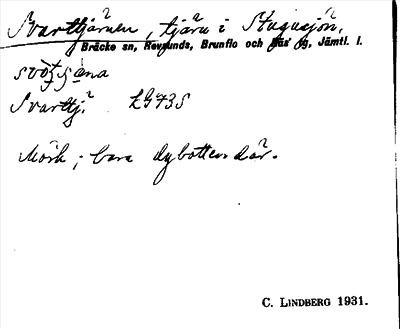 Svarttjärnen, tjärn i Stugusjön,
Bräcke sn, Revsunds, Brunflo och Näs tg, Jämtl. l.
Svarttj.
Mörk; bara dybotten där.
C. LINDBERG 1931.